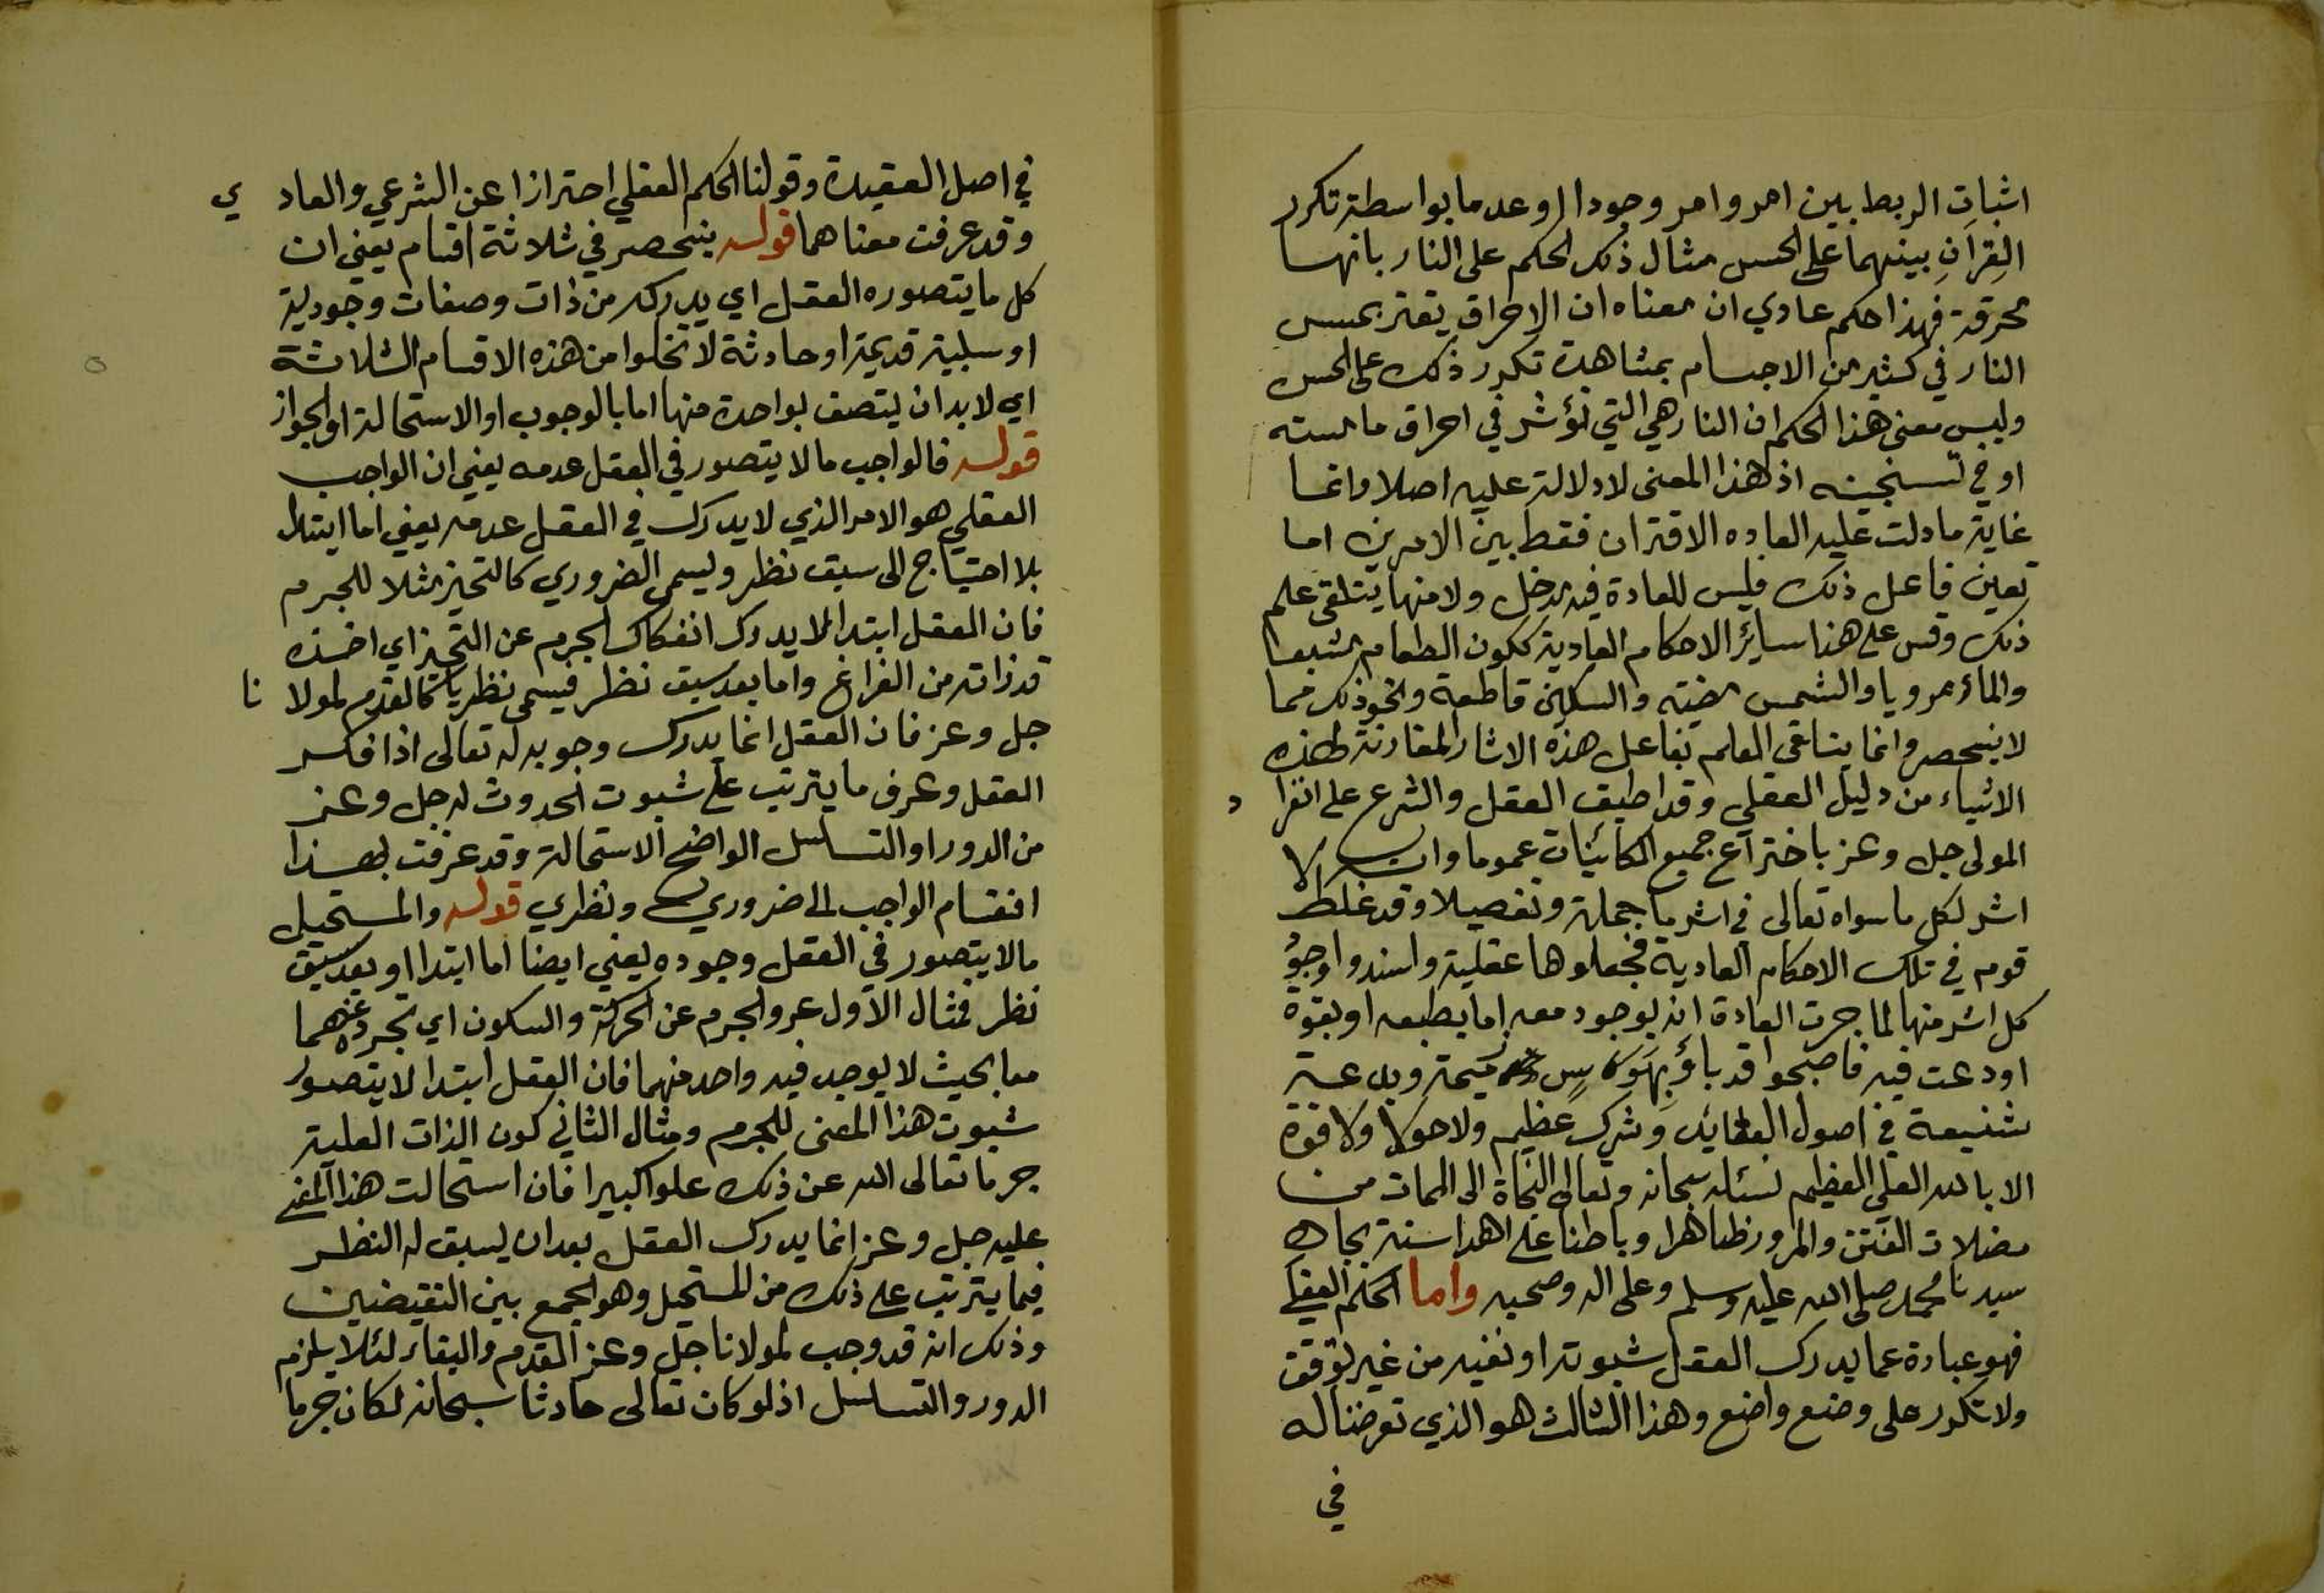 اثبات الربط بين امر وامر وجودا او عدما بواسطة تكرر
القِرانِ بينهما على الحس مثال ذلك الحكم على النار بانها
محرقة فهذا حكم عادي ان معناه ان الاحراق يقترن بمس
النار في كثير من الاجسام بمشاهدة تكرر ذلك على الحس
وليس معنى هذا الحكم ان النار هي التي تؤثر في احراق ما مسته
او في تسخينه اذ هذا المعنى لا دلالة عليه اصلا وانما
غاية ما دلت عليه العاده الاقتران فقط بين الامرين اما
تعين فاعل ذلك فليس للعادة فيه مدخل ولا منها يتلقى علم
ذلك وقس على هذا سائر الاحكام العادية ككون الطعام مشبعا
والماء مرويا والشمس مضيئه والسكين قاطعة ونحو ذلك مما
لا ينحصر وانما يتلقى العلم بفاعل هذه الاثار المقارنة لهذه
الاشياء من دليل العقلي وقد اطبق العقل والشرع على انفرا د
المولى جل وعز باختراع جميع الكائينات عموما وانه لا
اثر لكل ما سواه تعالى في اثر ما جملة وتفصيلا وقد غلط
قوم في تلك الاحكام العادية فجعلوها عقلية واسندوا وجوُ
كل اثر منها لما جرت العادة انه يوجد معه اما بطبعه او بقوة
اودعت فيه فاصبحوا قد باؤ بِهَوَس ذميمة وبدعة
شنيعة في اصول العقايد وشرك عظيم ولا حول ولا قوة
الا بالله العلي العظيم نسئله سبحانه وتعالى النجاة الى الممات من
مضلات الفتن والمرور ظاهرا وباطنا على اهدا سنة بجاه
سيدنا محمد صلى الله عليه وسلم وعلى اله وصحبه واما الحكم العقلي
فهو عبارة عما يدرك العقل ثبوته او نفيه من غير توقف
ولا تكرر على وضع واضع وهذا الثالث هو الذي تعرضنا له
في
في اصل العقيدة وقولنا الحكم العقلي احترازا عن الشرعي والعاد ي
وقد عرفت معناهما قوله ينحصر في ثلاثة اقسام يعني ان
كل ما يتصوره العقل اي يدركه من ذات وصفات وجودية
او سلبية قديمة او حادثة لا تخلوا من هذه الاقسام الثلاثة
اي لابد ان يتصف بواحدة منها اما بالوجوب او الاستحالة او الجواز
قوله فالواجب ما لا يتصور في العقل عدمه يعني ان الواجب
العقلي هو الامر الذي لا يدرك في العقل عدمه يعني اما ابتداء
بلا احتياج الى سبق نظر ويسمى الضروري كالتحيز مثلا للجرم
فان العقل ابتدا لا يدرك انفكاك الجرم عن التحيز اي اخذه
قدر ذاته من الفراغ واما بعد سبق نظر فيسمى نظريا كالقدم لمولا نا
جل وعز فان العقل انما يدرك وجوبه له تعالى اذا فكر
العقل وعرف ما يترتب على ثبوت الحدوث له جل وعز
من الدور او التسلسل الواضح الاستحالة وقد عرفت بهذا
انقسام الواجب الى ضروري ونظري قوله والمستحيل
ما لا يتصور في العقل وجوده يعني ايضا اما ابتدا او بعد سبق
نظر فمثال الاول عرو الجرم عن الحركة والسكون اي تجرده عنهما
معا بحيث لا يوجد فيه واحد منهما فان العقل ابتدا لا يتصور
ثبوت هذا المعنى للجرم ومثال الثاني كون الذات العلية
جرما تعالى الله عن ذلك علوا كبيرا فان استحالت هذا المعنى
عليه جل وعز انما يدرك العقل بعد ان يسبق له النظر
فيما يترتب على ذلك من المستحيل وهو الجمع بين النقيضين
وذلك انه قد وجب لمولانا جل وعز القدم والبقاء لئلا يلزم
الدور والتسلسل اذ لو كان تعالى حادثا سبحانه لكان جرما